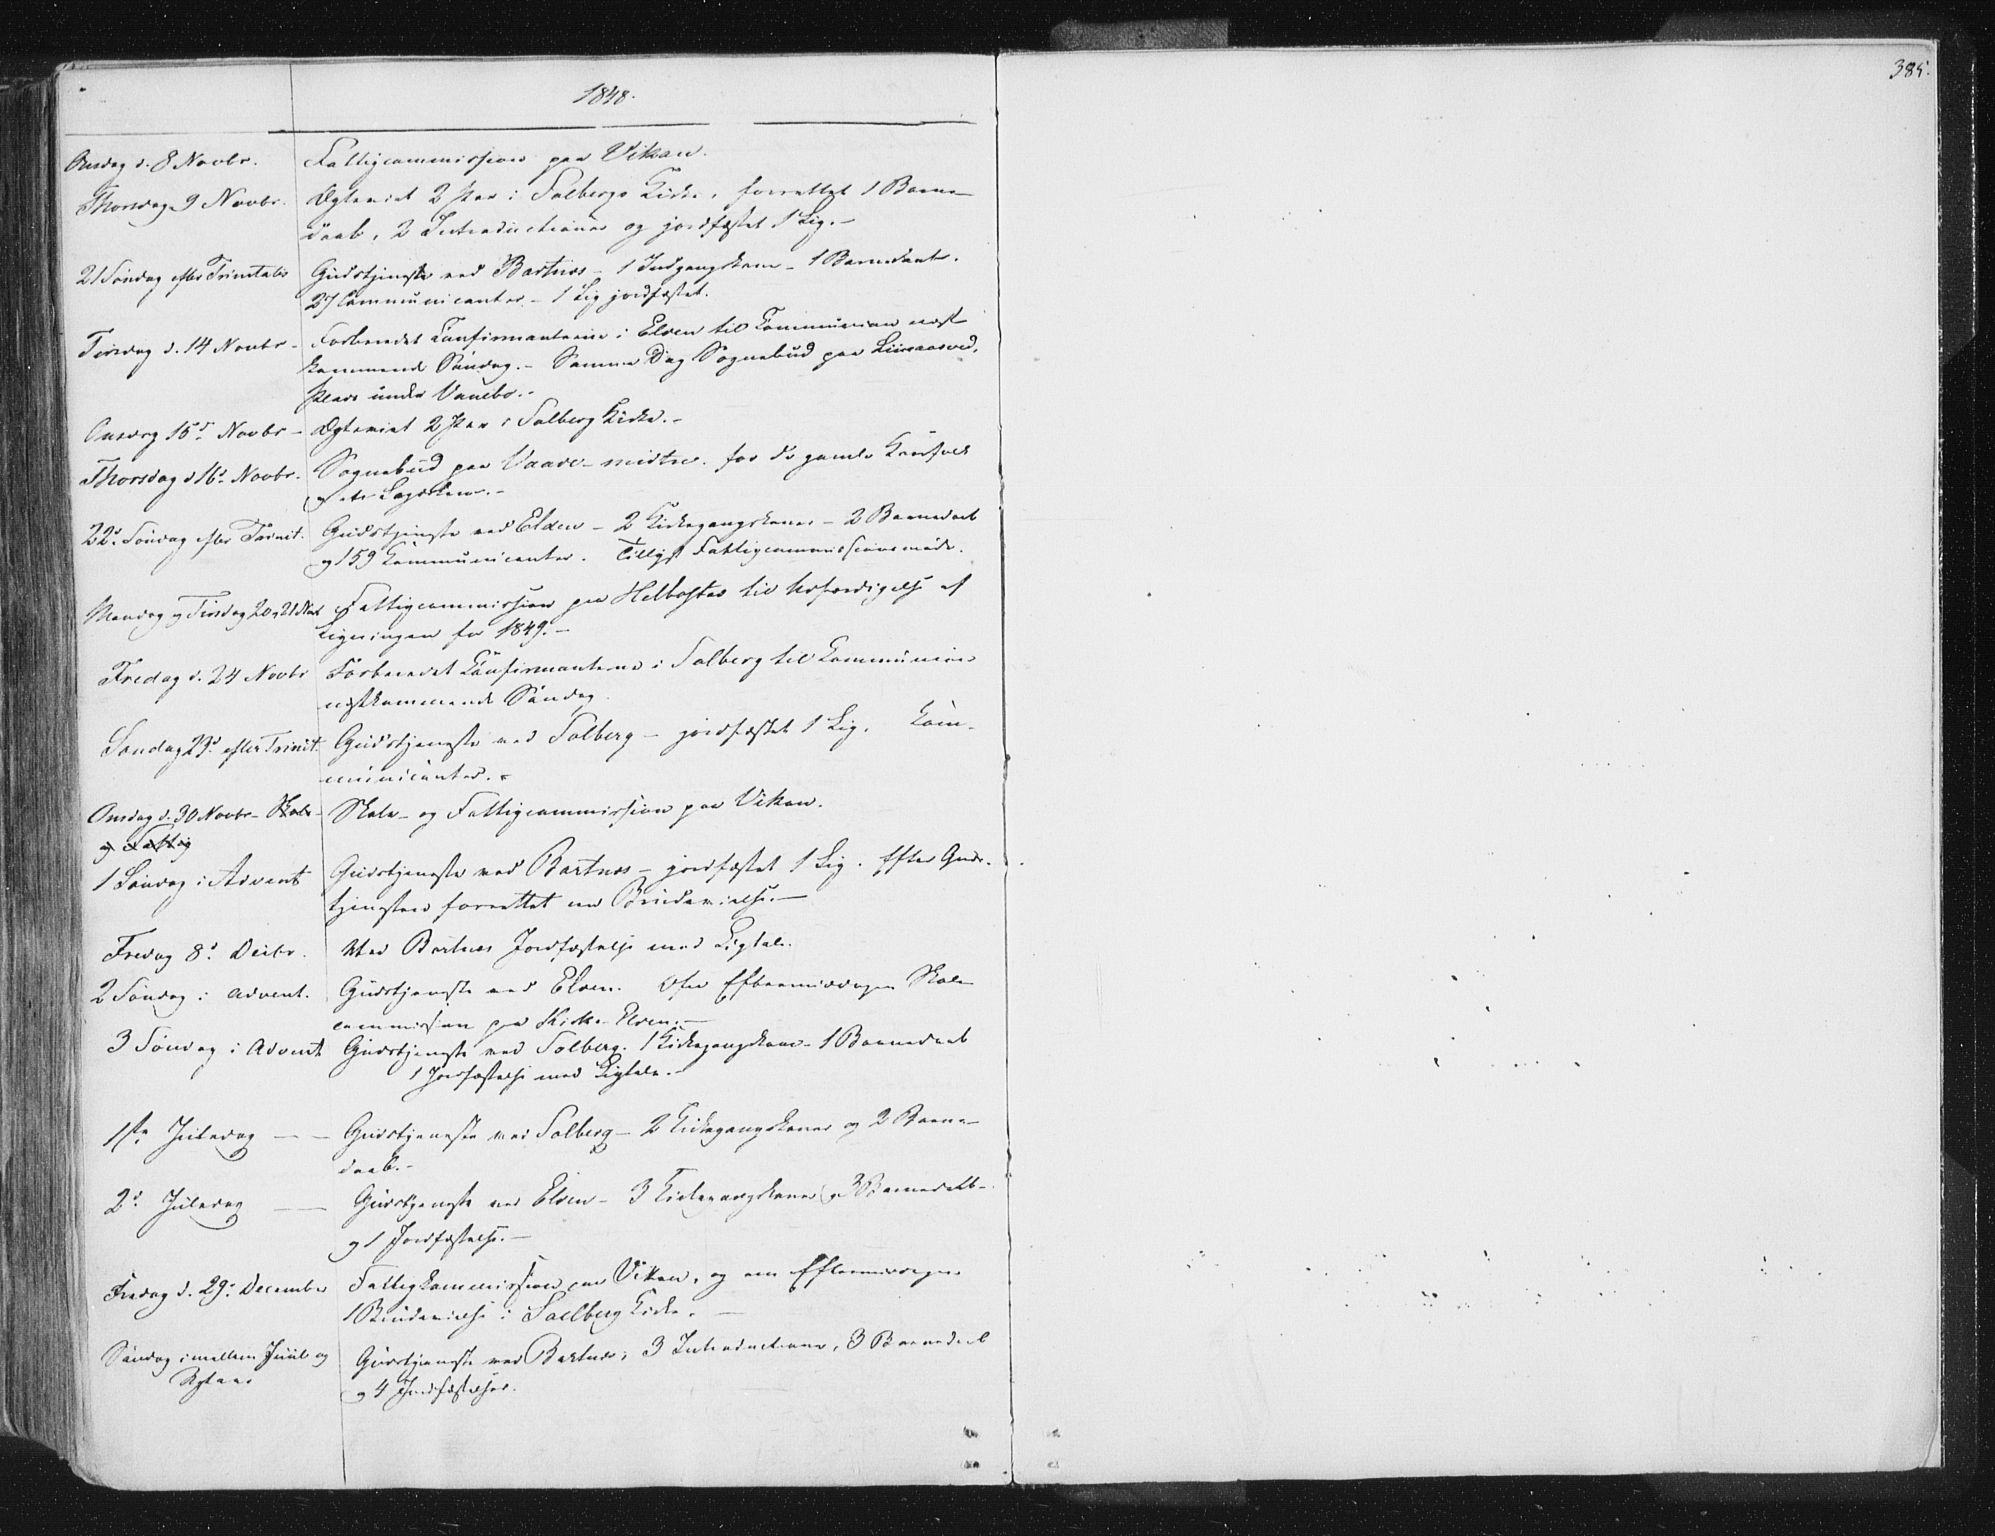 385.
1848.
Onsdag d. 8 Novbr. Fattigcommission paa Vikan.
Thorsdag 9 Novbr. Ægteviet 2 Par i Solbergs Kirke, forrettet 1 Barne-
daab, 2 Introductioner og jordfæstet 1 Lig.-
21 Søndag efter Trinitatis Gudstjeneste ved Bartnæs - 1 Indgangskone - 1 Barnedaab.
27 Communicanter - 1 Lig jordfæstet.
Tirsdag d. 14 Novbr - Forberedet Confirmanterne i Elden til Communion næst
kommende Søndag. - Samme Dag Sognebud paa
Plads under
Onsdag 15d Novbr - Ægteviet 2 Par i Solberg Kirke.-
Thorsdag d 16d Novbr. Sognebud paa midtre for de gamle Kaarfolk
og
22d Søndag efter Trinit. Gudstjeneste ved Elden - 2 Kirkegangskoner - 2 Barnedaab
og 159 Kommunicanter. Tilligst Fattigcommissionsmøde.
Mandag og Tirsdag 20 og 21 Nov Fattigcommission paa til Udfærdigelse af
Ligningen for 1849.-
Fredag d. 24 Novbr Forberedet Confirmanterne i Solberg til Communion
næstkommende Søndag.
Søndag 23d efter Trinit. Gudstjeneste ved Solberg - jordfæstet 1 Lig. Com-
municanter.-
Onsdag d. 30 Novbr - Skole- Skole- og Fattigcommission paa Vikan.
og Fattig
1 Søndag i Advent Gudstjeneste ved Bartnæs - jordfæstet 1 Lig. Efter Guds-
tjenesten forrettet en Brudevielse.-
Fredag 8d Decbr. Ved Bartnæs Jordfæstelse med Ligtale.
2 Søndag i Advent. Gudstjeneste ved Elden. Eftermiddagen Skole
commission paa Kirke-Elden.-
3 Søndag i Advent Gudstjeneste ved Solberg. 1 Kirkegangskone - 1 Barnedaab
1 Jordfæstelse med Ligtale.-
1ste Juledag - - Gudstjeneste ved Solberg - 2 Kirkegangskoner og 2 Barne-
daab.-
2d Juledag - - Gudstjeneste ved Elden - 3 Kirkegangskoner, 3 Barnedaab-
og 1 Jordfæstelse.-
Fredag d. 29d December Fattigkommission paa Vikan, og om Eftermiddagen
1 Brudevielse i Soelberg Kirke.-
Søndag imellem Juul og Gudstjeneste ved Bartnæs; 3 Introductioner, 3 Barnedaab
Nytaar og 4 Jordfæstelser.